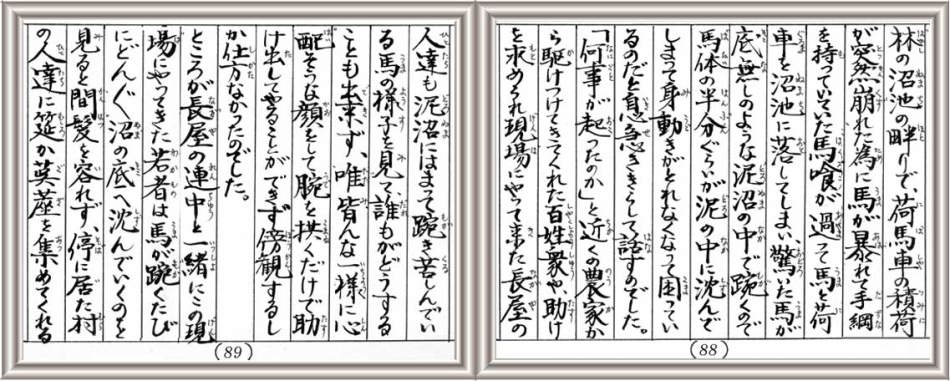 林の沼池の畔りで、荷馬車の積荷
が突然崩れた為に馬が暴れて手綱
を持っていた馬喰が過って馬と荷
車を沼池に落してしまい驚いた馬が
底無しのような泥沼の中で踠くので
馬体の半分ぐらいが泥の中に沈んで
しまって身動きがとれなくなって困ってい
るのだと息急ききらして話すのでした。
「何事が起ったのか」と近くの農家か
ら駆けつけてきてくれた百姓衆や、助け
を求められ現場にやって来た長屋の
(88)
人達も泥沼にはまって踠き苦しんでい
る馬の様子を見て、誰もがどうする
ことも出来ず、唯皆んな一様に心
配そうな顔をして腕を拱くだけで助
け出してやることができず傍観するし
か仕方なかったのでした。
ところが長屋の連中と一緒にこの現
場にやってきた若者は馬が踠くたび
にどんぐ沼の底へ沈んでいくのを
見ると間髪を容れず、傍に居た村
の人達に筵か茣蓙を集めてくれる
(89)